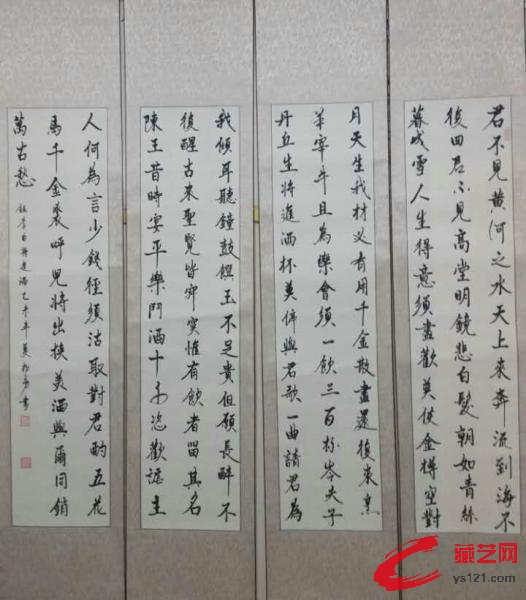 君不見黃河之水天上來奔流到海不
復回君不見高堂明鏡悲白髮朝如青絲
暮成雪人生得意須盡歡莫使金樽空對
月天生我材必有用千金散盡還復來烹
羊宰牛且為樂會須一飲三百杯岑夫子
丹丘生將進酒杯莫停與君歌一曲請君為
我傾耳聽鐘鼓饌玉不足貴但願長醉不
復醒古來聖賢皆寂寞惟有飲者留其名
陳王昔時宴平樂鬥酒十千恣歡謔主
人何為言少錢徑須沽取對君酌五花
馬千金裘呼兒將出換美酒與爾同銷
萬古愁
錄李白將進酒乙未年夏書
藏艺网
ys121.com